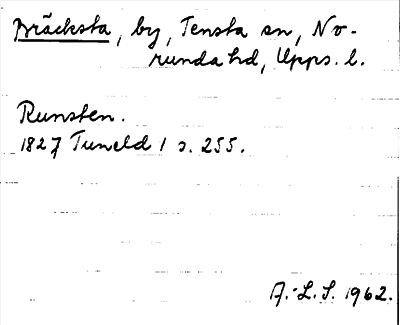 Bräcksta, by, Tensta sn, No-
runda hd, Upps. l.
Runsten.
1827 Tuneld 1 s. 255.
A.-L.S. 1962.